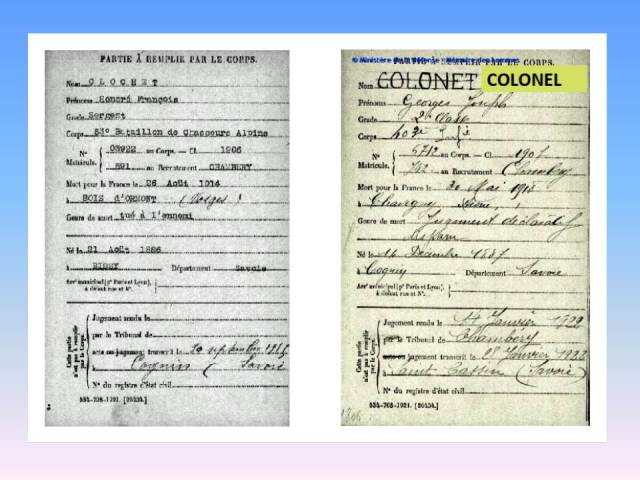 PARTIE À REMPLIR PAR LE CORPS.
Nom CLOCHET
Prénoms Honoré François
Grade Sergent
Corps 53º Bataillon de Chasseurs Alpins
Nº Matricule. 03922 au Corps. — Cl. 1906
891 au Recrutement CHAMBERY
Mort pour la France le 26 Août 1914
à BOIS d'ORMONT (Vosges)
Genre de mort tué à l'ennemi
Né le 21 Août 1886
à Département Savoie
Arrᵗ municipal (pʳ Paris et Lyon), à défaut rue et Nº.
Cette partie n'est pas à remplir par le Corps.
Jugement rendu le
par le Tribunal de
acte ou jugement transcrit le
Cognin (Savoie)
Nº du registre d'état civil
534-708-1921. [26434.]
© Ministère de la défense - Mémoire des hommes
PARTIE À REMPLIR PAR LE CORPS.
Nom COLONET COLONEL
Prénoms Georges Joseph
Grade 2e Classe
Corps
Nº Matricule. 5712 au Corps. — Cl. 1907
au Recrutement Chambéry
Mort pour la France le 30 Mai 1918
à
Genre de mort Jugement déclaratif
Né le 14 Décembre 1887
à Cognin Département Savoie
Arrᵗ municipal (pʳ Paris et Lyon), à défaut rue et Nº.
Cette partie n'est pas à remplir par le Corps.
Jugement rendu le 14 Janvier 1922
par le Tribunal de Chambéry
acte ou jugement transcrit le 28 Janvier 1922
Saint Cassin (Savoie)
Nº du registre d'état civil
534-708-1921. [26434.]